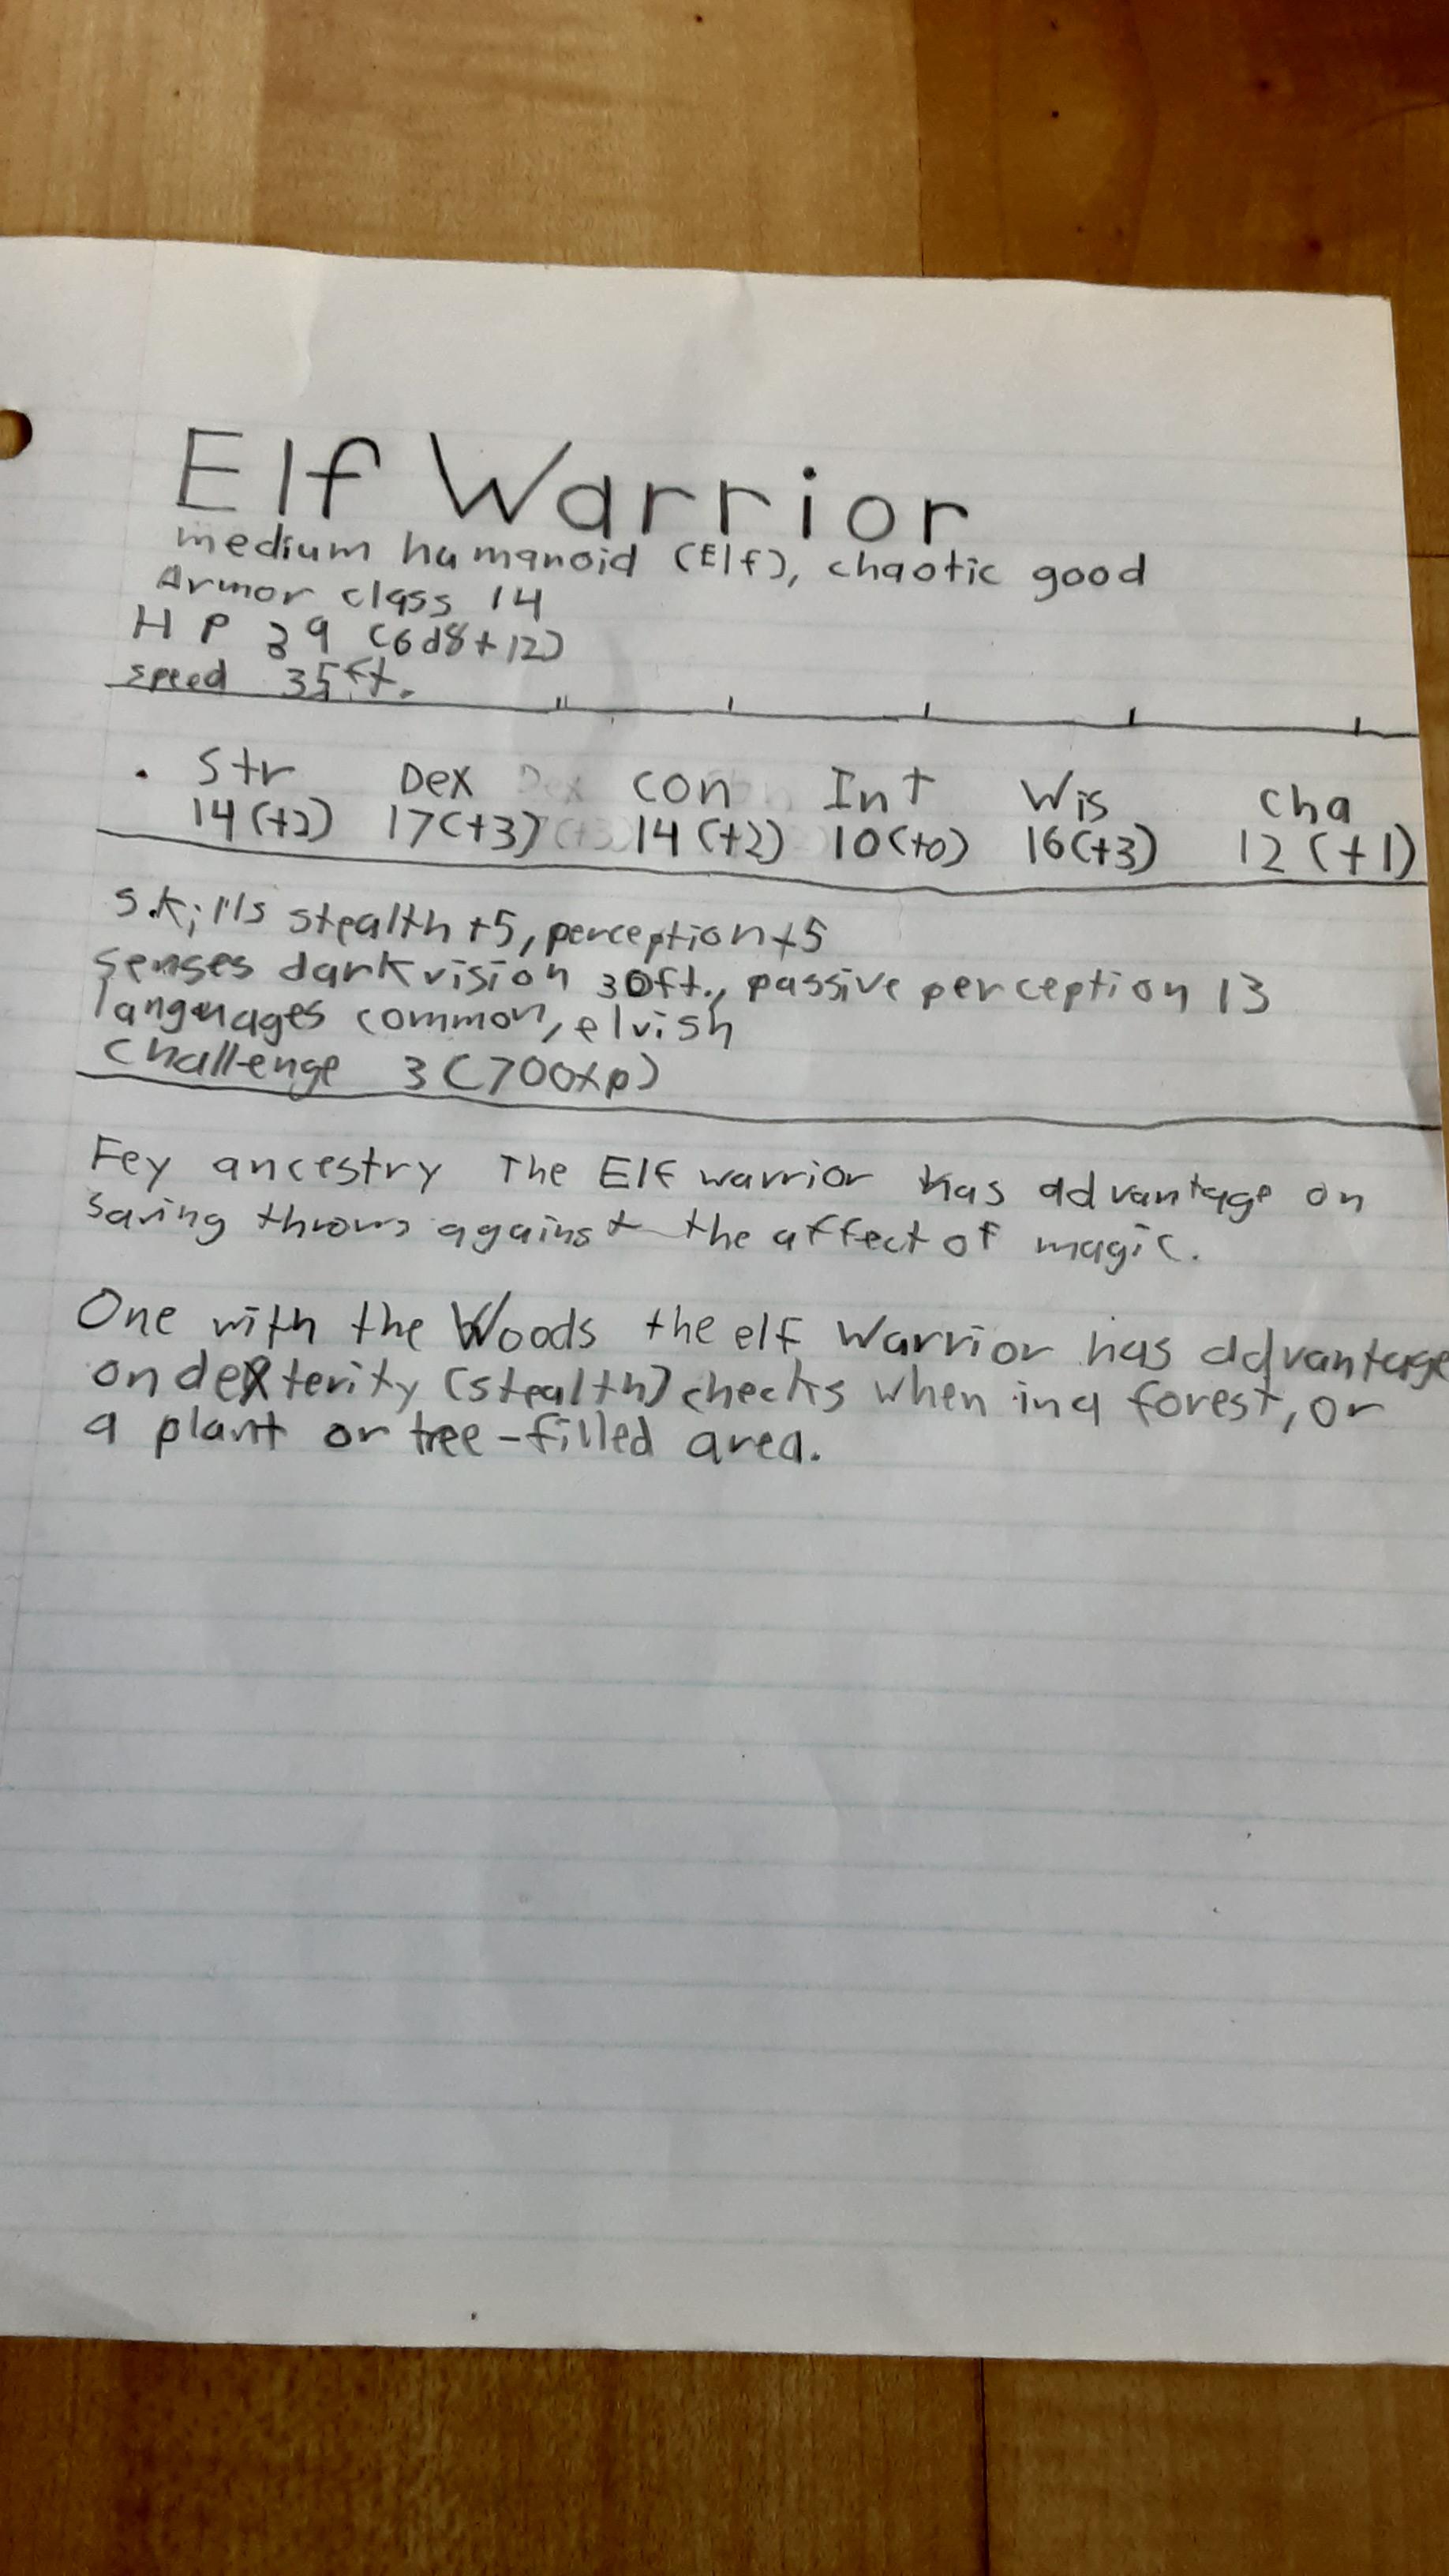 Elf Warrior
medium humanoid (Elf), chaotic good
Armor class 14
HP 39 (6d8+12)
speed 35ft.
Str Dex Con Int Wis Cha
14(+2) 17(+3) 14(+2) 10(+0) 16(+3) 12(+1)
Skills stealth +5, perception +5
Senses darkvision 30ft., passive perception 13
languages common, elvish
Challenge 3(700xp)
Fey ancestry The Elf warrior has advantage on
saving throws against the affect of magic.
One with the Woods the elf Warrior has advantage
on dexterity (stealth) checks when in a forest, or
a plant or tree-filled area.